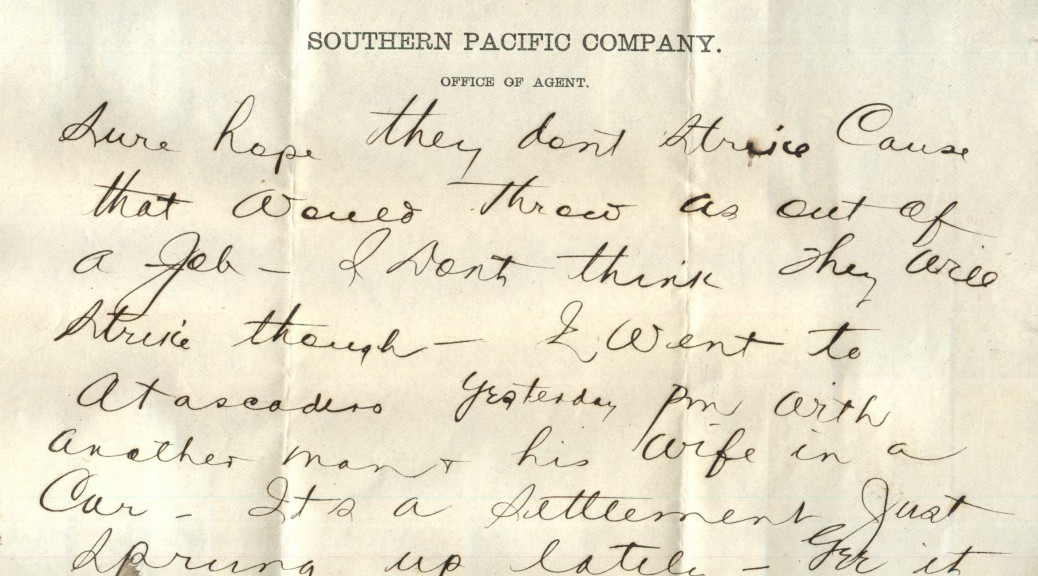 SOUTHERN PACIFIC COMPANY.
OFFICE OF AGENT.
Sure hope they dont Strike Cause
that Would throw us out of
a Job – I Dont think They Will
Strike though – I Went to
Atascadero Yesterday Pm With
another man + his Wife in a
Car – Its a Settlement Just
Sprung up lately – Gee it